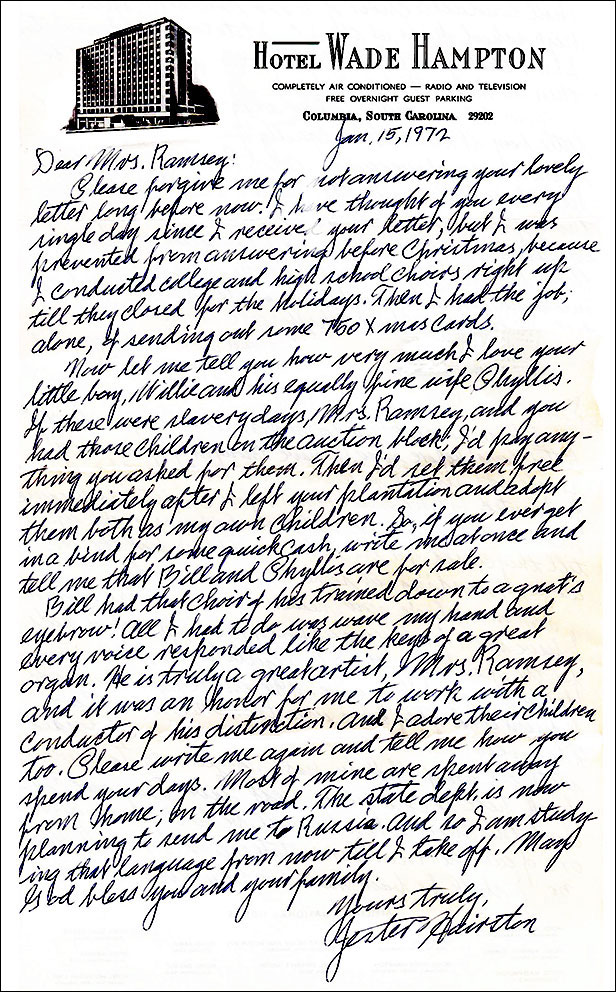 HOTEL WADE HAMPTON
COMPLETELY AIR CONDITIONED — RADIO AND TELEVISION
FREE OVERNIGHT GUEST PARKING
COLUMBIA, SOUTH CAROLINA 29202
Jan, 15, 1972
Dear Mrs. Ramsey:
Please forgive me for not answering your lovely
letter long before now. I have thought of you every
single day since I received your letter, but I was
prevented from answering before Christmas, because
I conducted college and high school choirs right up
till they closed for the holidays. Then I had the job,
alone, of sending out some 760 Xmas cards.
Now let me tell you how very much I love your
little boy, Willie and his equally fine wife Phyllis.
If these were slavery days, Mrs. Ramsey, and you
had those children on the auction block, I'd pay any-
thing you asked for them. Then I'd set them free
immediately after I left your plantation and adopt
them both as my own children. So, if you ever get
in a bind for some quick cash, write me at once and
tell me that Bill and Phyllis are for sale.
Bill had that choir of his trained down to a gnat's
eyebrow! All I had to do was wave my hand and
every voice responded like the keys of a great
organ. He is truly a great artist, Mrs. Ramsey,
and it was an honor for me to work with a
conductor of his distinction. And I adore their children
too. Please write me again and tell me how you
spend your days. Most of mine are spent away
from home; on the road. The state dept. is now
planning to send me to Russia. And so I am study-
ing that language from now till I take off. May
God bless you and your family.
Yours truly,
Jester Hairston